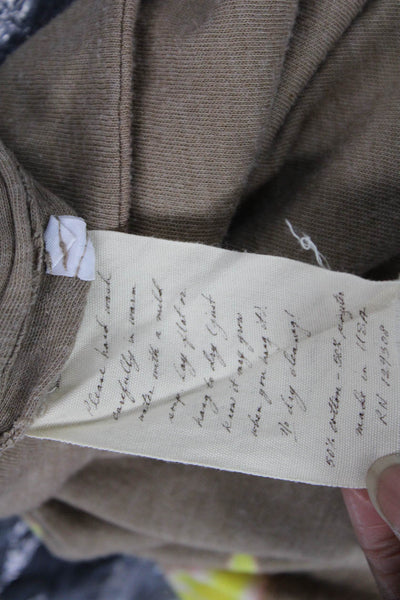 Please hand wash
carefully in warm
water with a mild
soap lay flat or
hang to dry (just
know it may grow
when you hang it!
No dry cleaning!
50% cotton - 50%
made in U.S.A
RN 129308